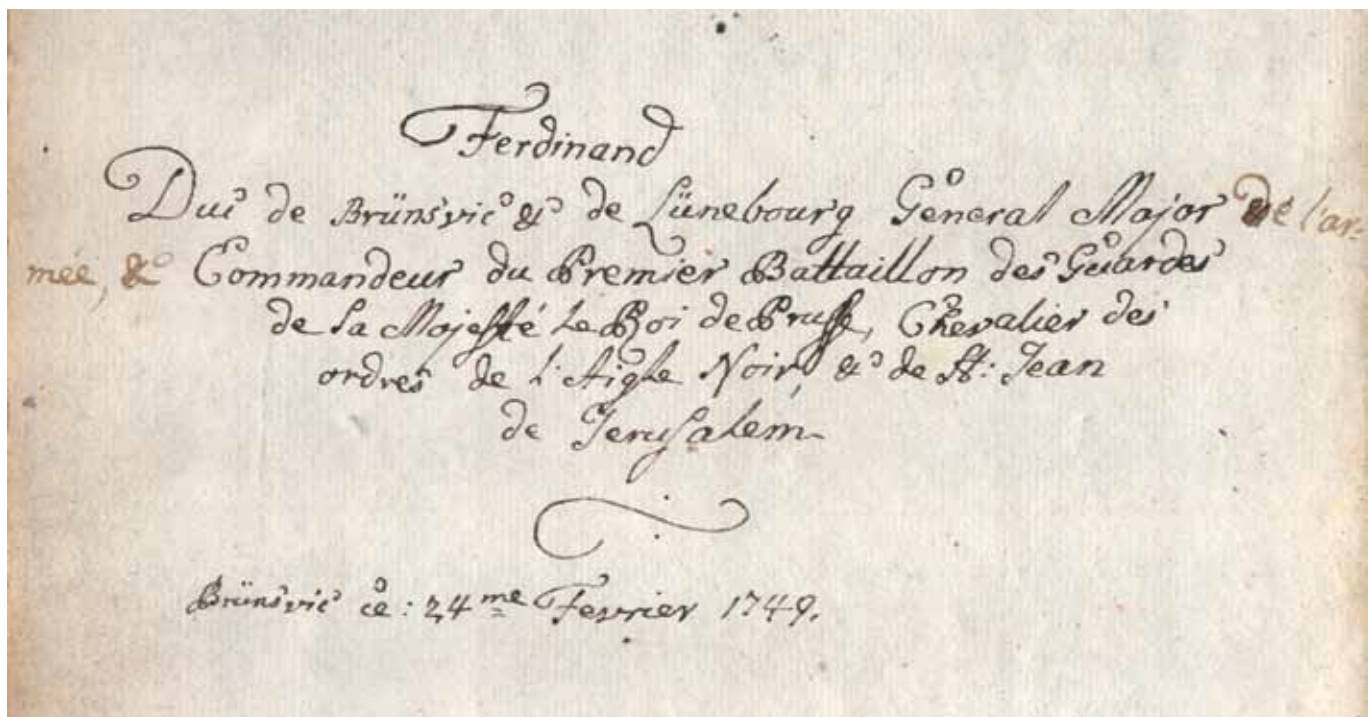 Ferdinand
Duc de Brünsvic & de Lünebourg General Major de l'ar-
mée, & Commandeur du Premier Battaillon des Guardes
de Sa Majesté Le Roi de Prusse, Chevalier des
ordres de l'Aigle Noir, & de St: Jean
de Jerusalem
Brünsvic ce: 24me Fevrier 1749.